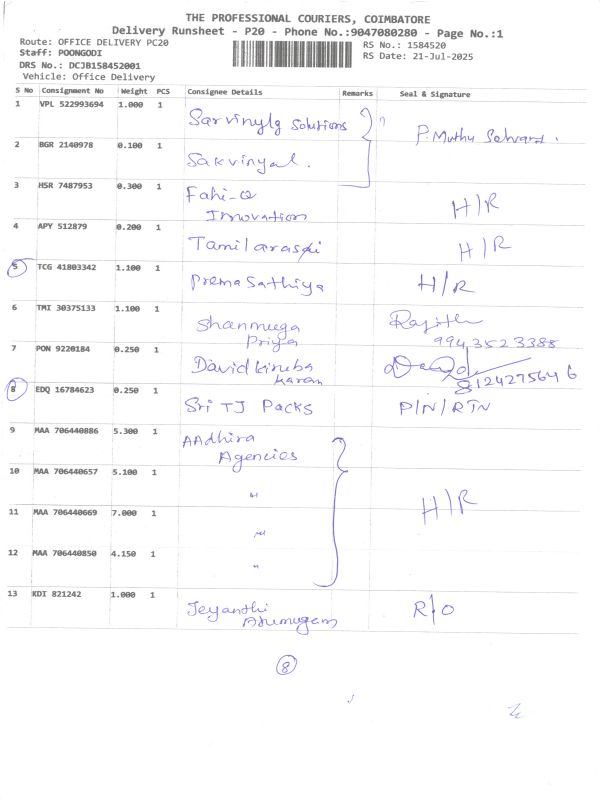 THE PROFESSIONAL COURIERS, COIMBATORE
Delivery Runsheet - P20 - Phone No.:9047080280 - Page No.:1
Route: OFFICE DELIVERY PC20
Staff: POONGODI
DRS No.: DCJB158452001
Vehicle: Office Delivery
RS No.: 1584520
RS Date: 21-Jul-2025
S No Consignment No Weight PCS Consignee Details Remarks Seal & Signature
1 VPL 522993694 1.000 1 Sarvinylg Solutions P. Muthu Selvard.
2 BGR 2140978 0.100 1 Sakvinyal.
3 HSR 7487953 0.300 1 Fahi-o
Innovation H/R
4 APY 512879 0.200 1 Tamilarasi H/R
5 TCG 41803342 1.100 1 Prema Sathiya H/R
6 TMI 30375133 1.100 1 Shanmuga
Priya Rajith
9943523388
7 PON 9220184 0.250 1 David kiruba
karan 8124275646
8 EDQ 16784623 0.250 1 Sri TJ Packs P/N/RTN
9 MAA 706440886 5.300 1 AAdhira
Agencies
10 MAA 706440657 5.100 1 "
11 MAA 706440669 7.000 1 " H/R
12 MAA 706440850 4.150 1 "
13 KDI 821242 1.000 1 Jeyanthi
Arumugam R/O
8